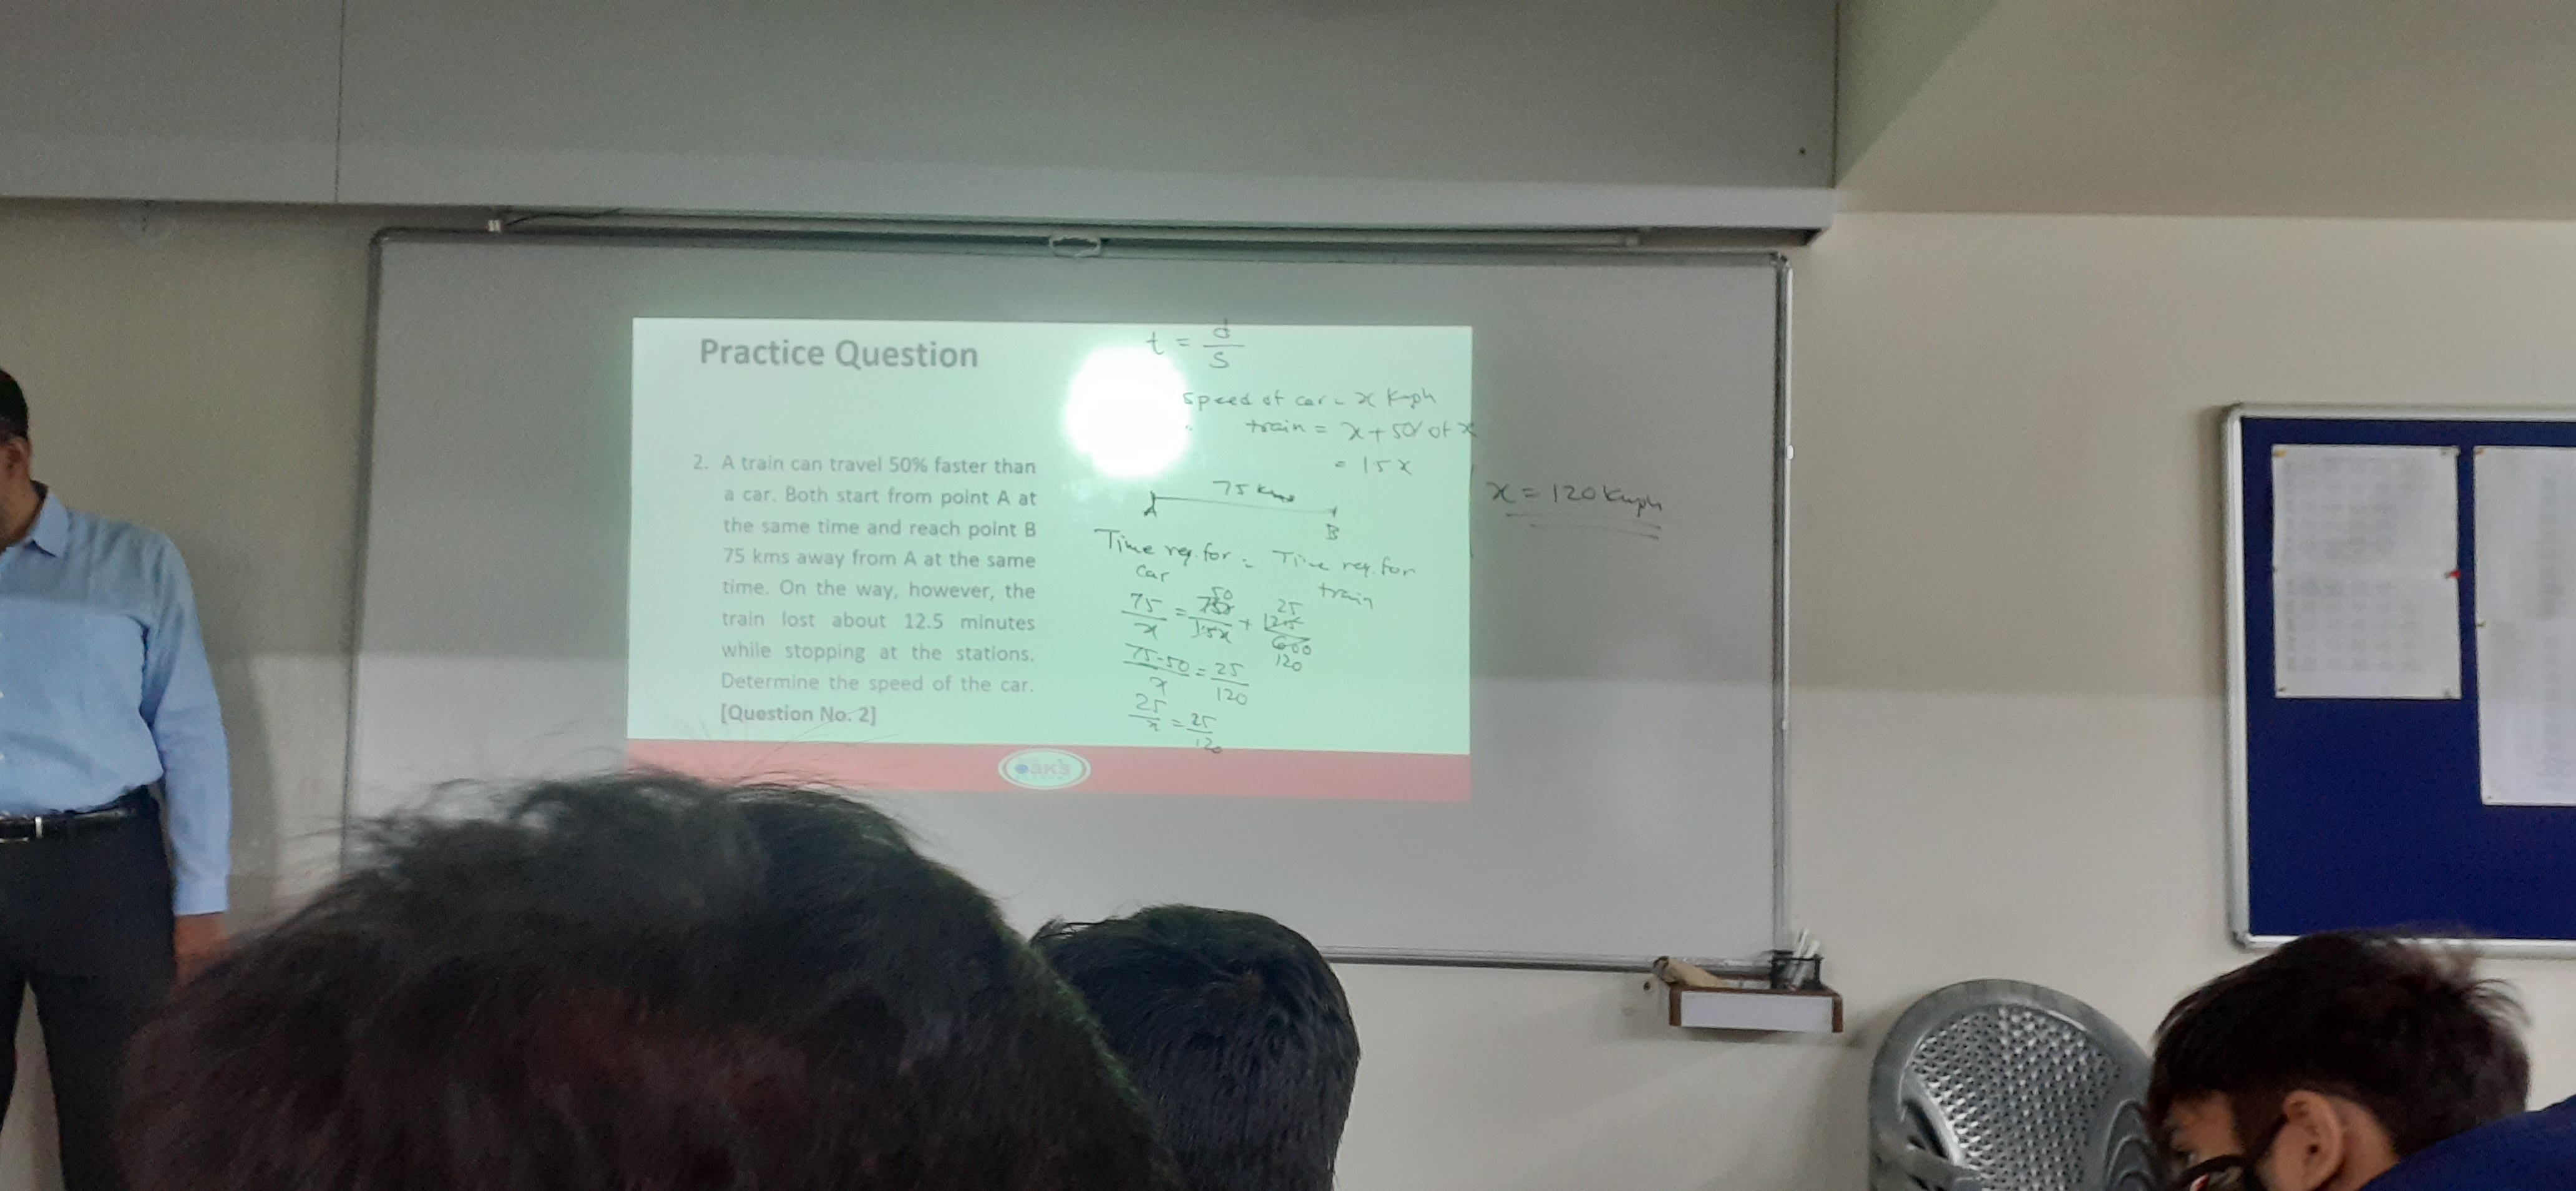 Practice Question
2. A train can travel 50% faster than
a car. Both start from point A at
the same time and reach point B
75 kms away from A at the same
time. On the way, however, the
train lost about 12.5 minutes
while stopping at the stations.
Determine the speed of the car.
[Question No. 2]
t = d/s
Speed of car = x Kmph
train = x + 50% of x
= 1.5x
75 kms
A
B
Time req. for = Time req. for
car
train
75/x = 750/15x + 125/600
50
25
120
75-50/x = 25/120
25/x = 25/120
x = 120 Kmph